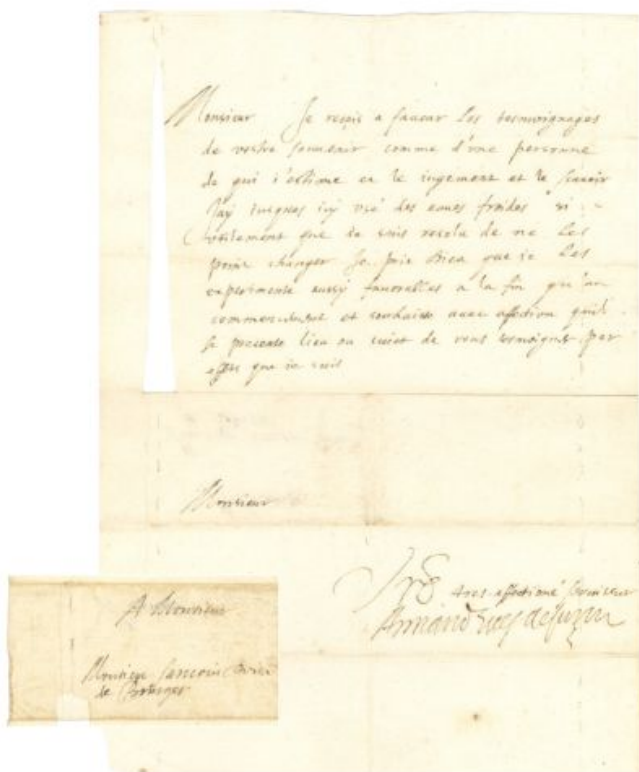 Monsieur Je reçois a faveur les tesmoignages
de vostre souvenir comme d'une personne
de qui j'estime et le iugement et le sçavoir
J'ay iusques icy usé des eaues froides si
utilement que ie suis resolu de ne les
point changer Je prie Dieu que ie les
experimente aussy favorables a la fin qu'au
commencement et souhaite avec affection qu'il
se presente lieu ou suiet de vous tesmoigner par
effet que ie suis
Monsieur
Vre tres affectioné serviteur
Armand
A Monsieur
Monsieur
de